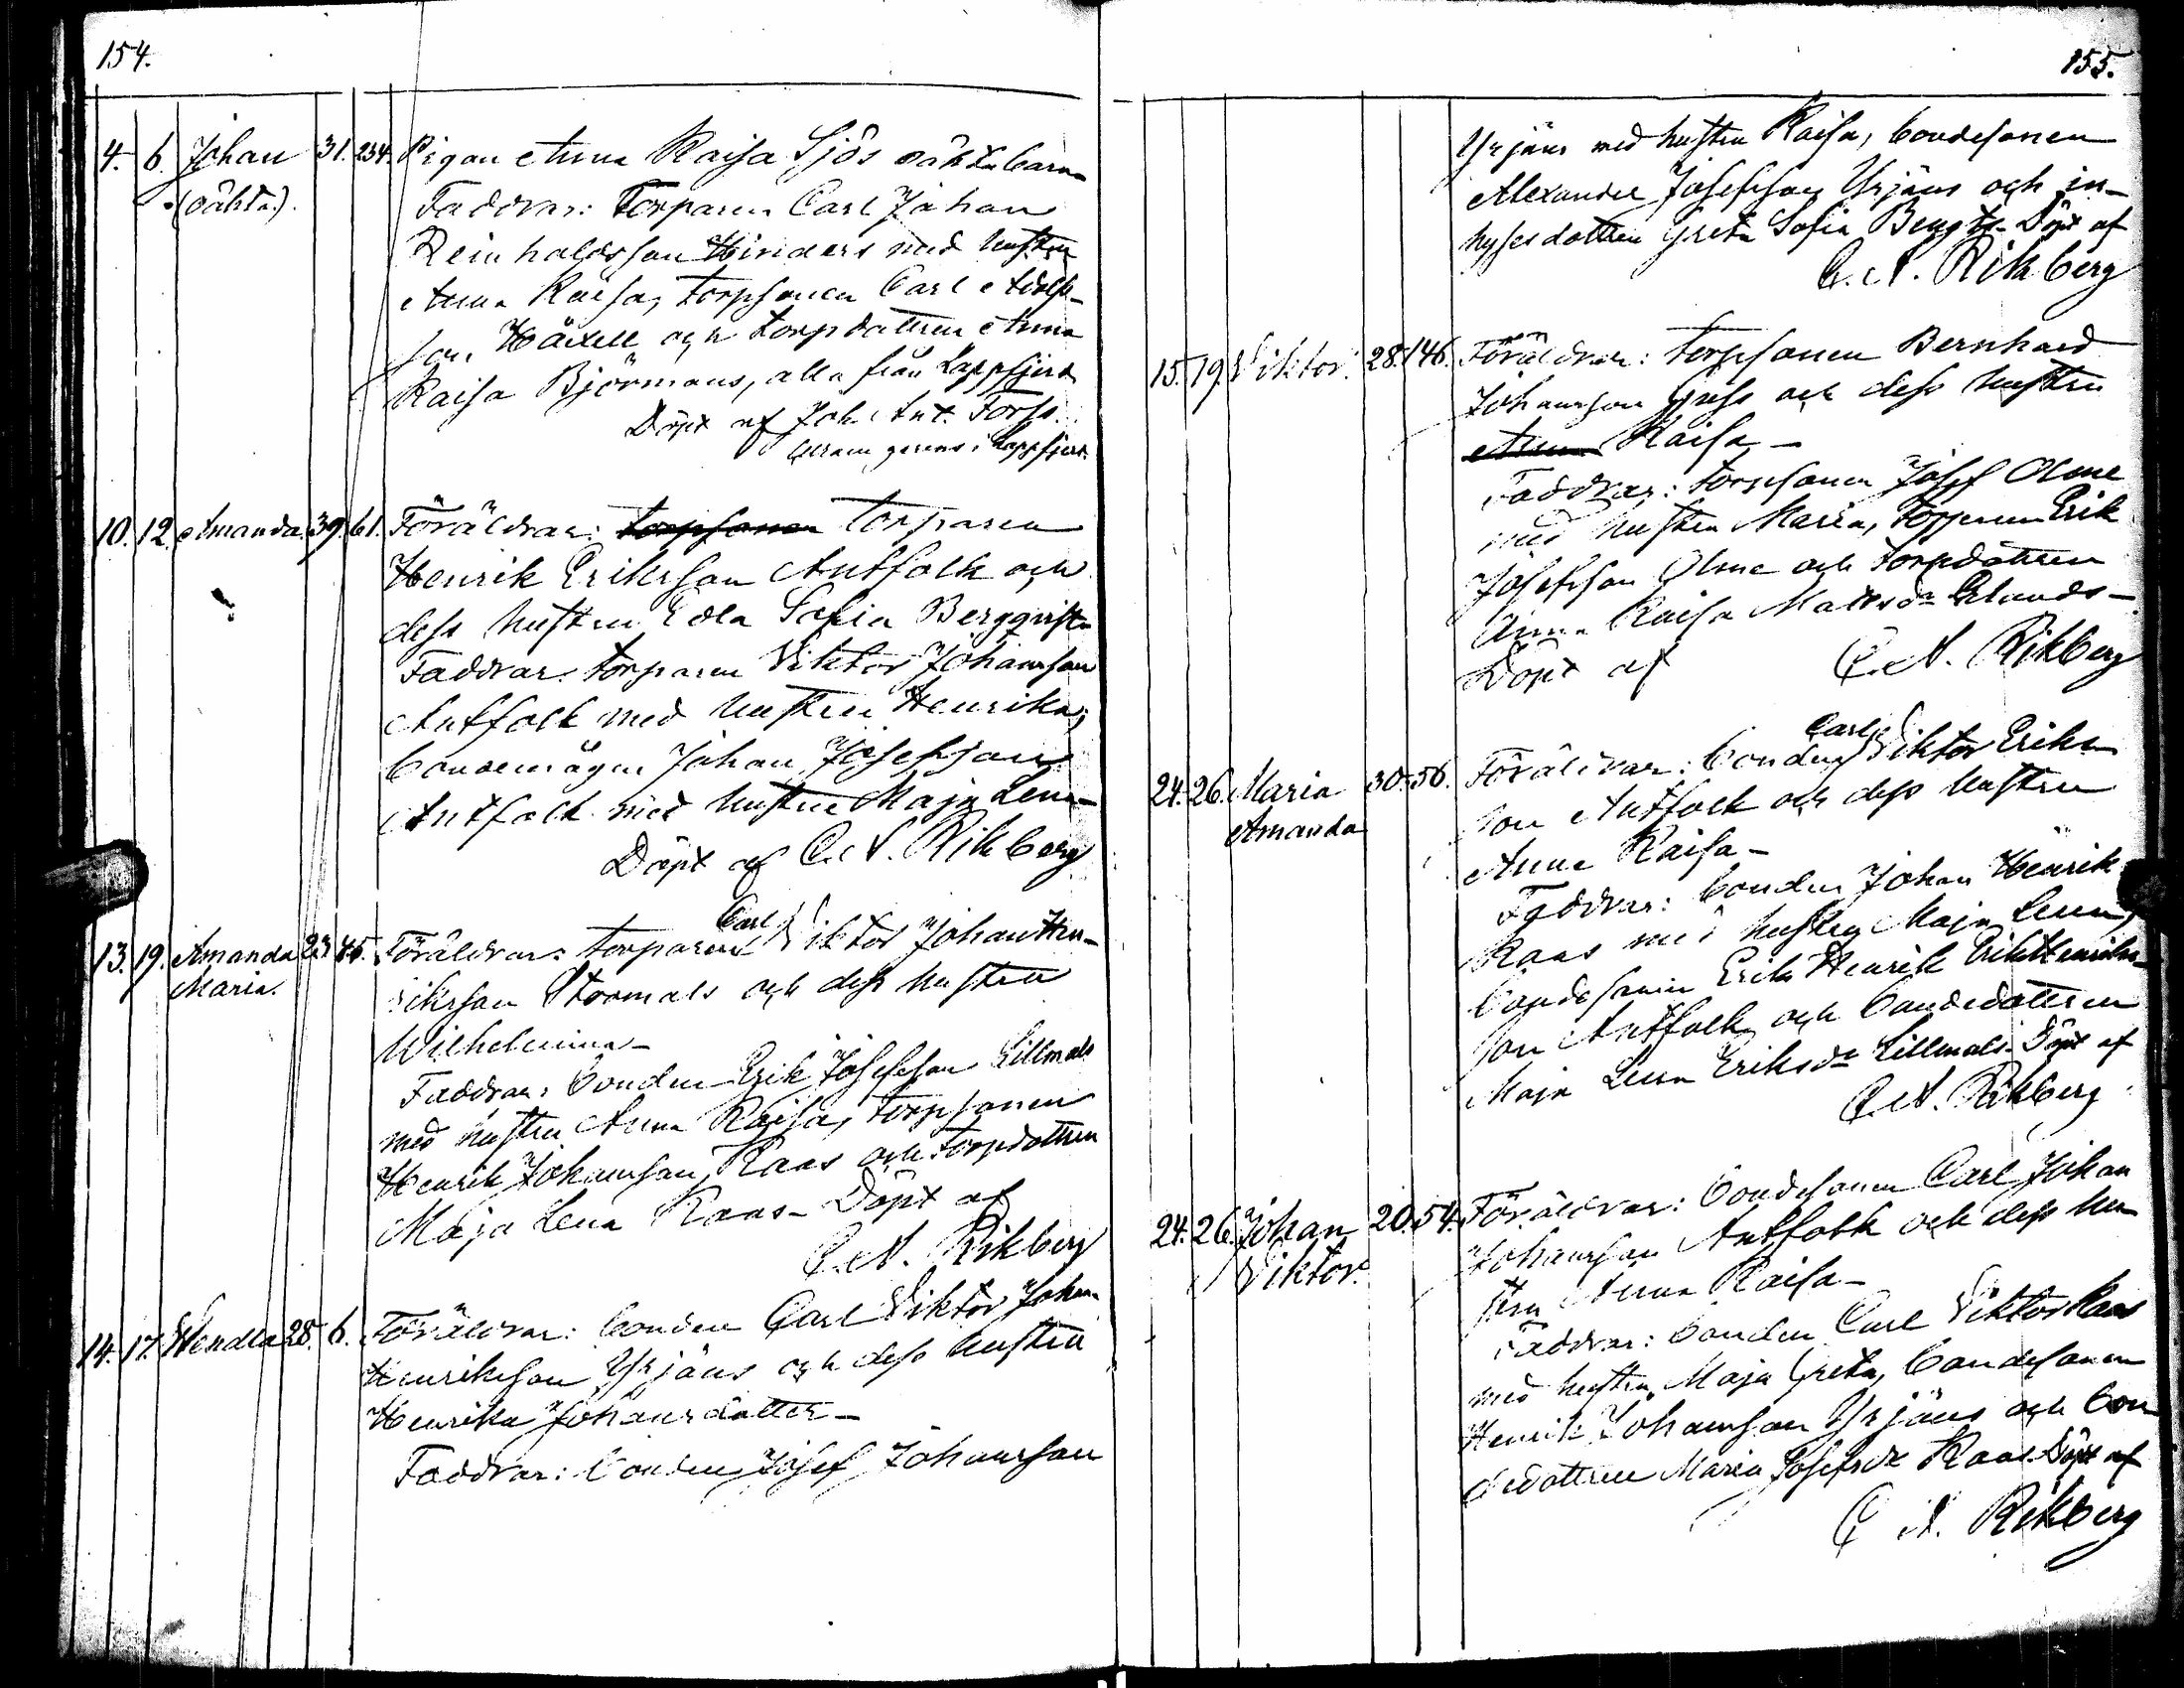 154.
4. 6. Johan 31. 234. Pigan Anna Kaisa Sjös oäkta barn
(oäkta). Faddrar: Torparen Carl Johan
Reinholdsson Hinders med hustru
Anna Kaisa, torpsonen Carl Adolfs-
son Häxell och torpdottren Anna
Kaisa Björnmans, alla från Lappfjerd
Döpt af Joh. Ant. Forss.
i Lappfjerd.
10. 12. Amanda 39. 61. Föräldrar: torpsonen torparen
Henrik Eriksson Antfolk och
dess hustru Edla Sofia Bergqvist
Faddrar: torparen Viktor Johansson
Antfolk med hustru Henrika,
bonden Johan Josefsson
Antfolk med hustru Maja Lena
Döpt af C. A. Rikberg
13. 19. Amanda 23 45. Föräldrar: torparen Carl Viktor Johan Hen-
Maria. riksson Stormåls och dess hustru
Wilhelmina-
Faddrar: bonden Erik Josefsson Lillmåls
med hustru Anna Kaisa, torpsonen
Henrik Johansson Kaas och torpdottren
Maja Lena Kaas- Döpt af
C. A. Rikberg
14. 17. Wendla 28. 6. Föräldrar: bonden Carl Viktor Johan
Henriksson Yrjäns och dess hustru
Henrika Johansdotter-
Faddrar: bonden Josef Johansson
155.
Yrjäns med hustru Kaisa, bondesonen
Alexander Josefsson Yrjäns och in-
hysesdottren Greta Sofia Bengts- Döpt af
C. A. Rikberg
15. 19. Viktor. 28. 146. Föräldrar: torpsonen Bernhard
Johansson Gräss och dess hustru
Anna Kaisa-
Faddrar: torpsonen Josef Olme
med hustru Maria, torpsonen Erik
Josefsson Olme och torpdottren
Anna Kaisa Matsdr Erlands-
Döpt af C. A. Rikberg
24. 26. Maria 30. 56. Föräldrar: bonden Carl Viktor Eriks-
Amanda son Antfolk och dess hustru
Anna Kaisa-
Faddrar: bonden Johan Henrik
Kaas med hustru Maja Lena,
bondesonen Erik Henrik Erik Henriks-
son Antfolk och bondedottren
Maja Lena Eriksdr Lillmåls- Döpt af
C. A. Rikberg
24. 26. Johan 20. 54. Föräldrar: bondesonen Carl Johan
Viktor. Johansson Antfolk och dess hu-
stru Anna Kaisa-
Faddrar: bonden Carl Viktor Kaas
med hustru Maja Greta, bondesonen
Henrik Johansson Yrjäns och bon-
dedottren Maria Josefsdr Kaas. Döpt af
C. A. Rikberg